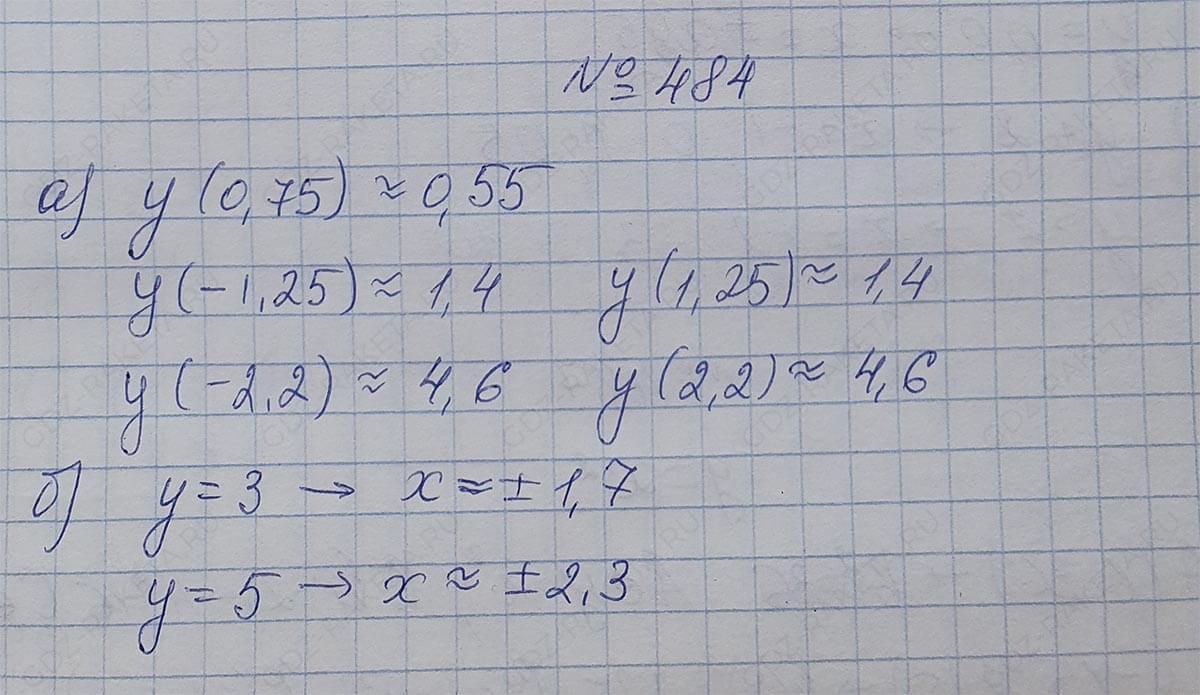 № 484
а) y (0,75) ≈ 0,55
y (-1,25) ≈ 1,4 y (1,25) ≈ 1,4
y (-2,2) ≈ 4,6 y (2,2) ≈ 4,6
б) y = 3 → x ≈ ± 1,7
y = 5 → x ≈ ± 2,3